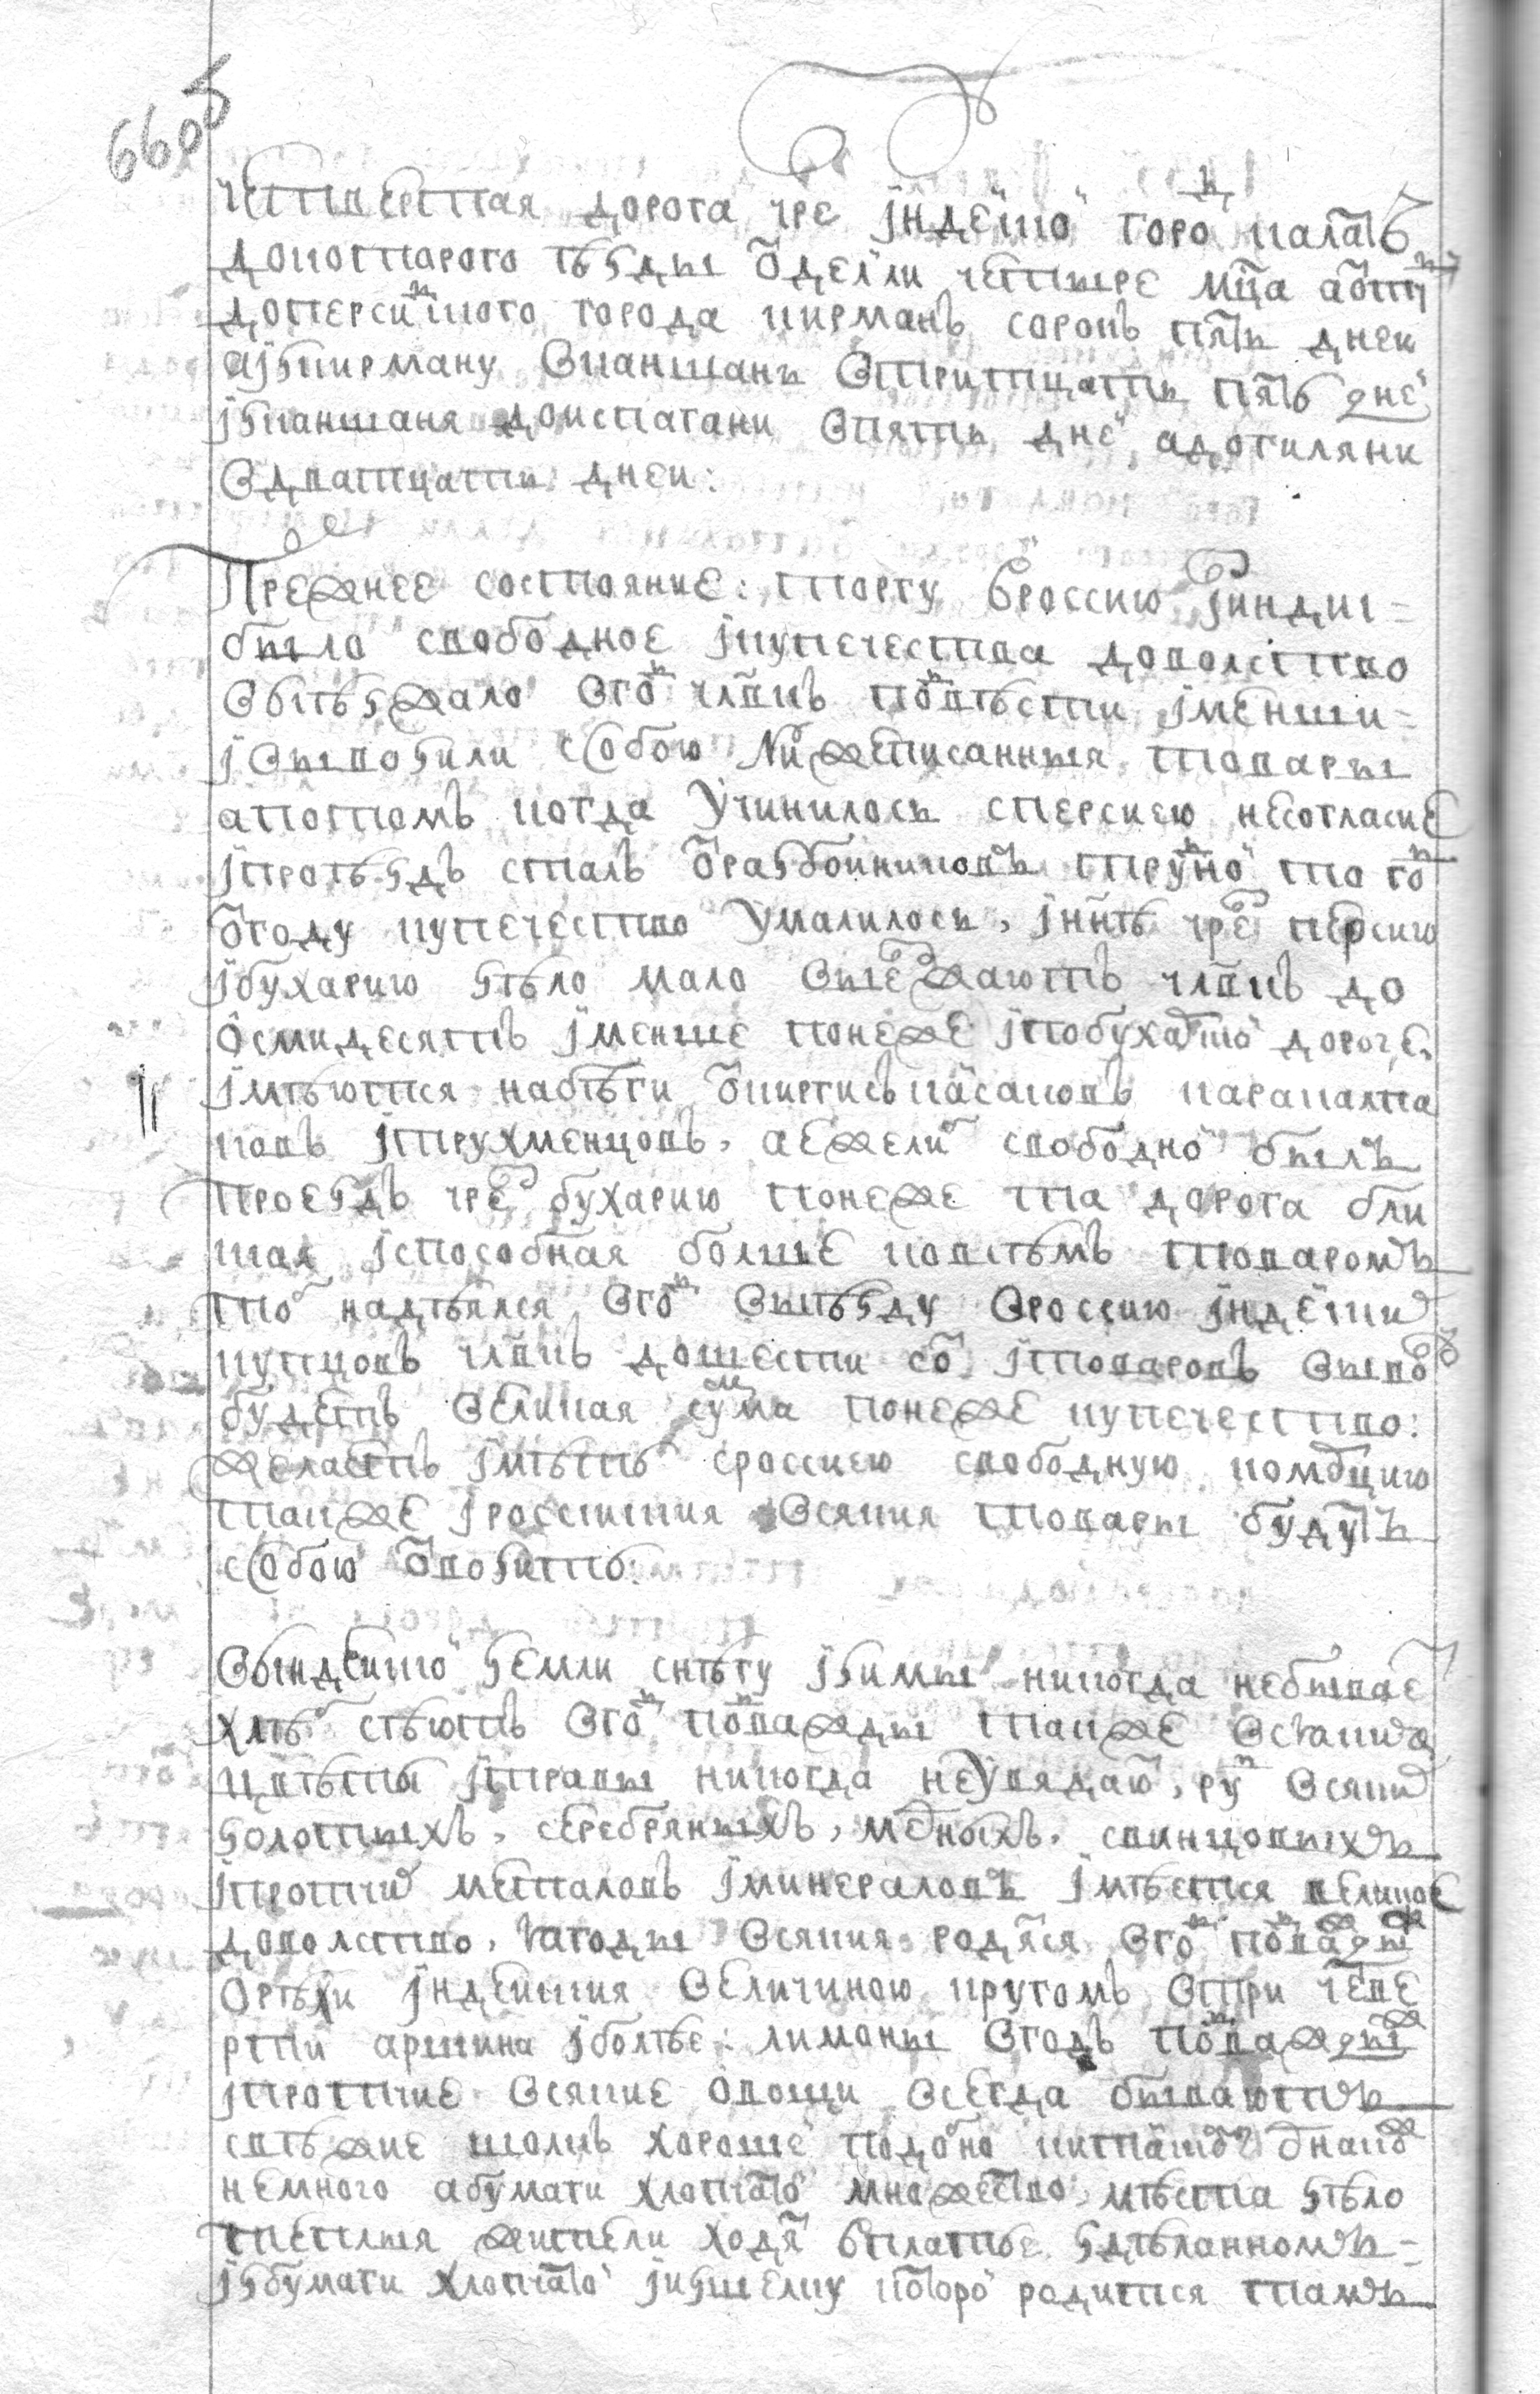 660б
четвертая дорога чре индейской город калат
допоттарого ѣзды одели четыре мца аотту
доперсицкого города кирманъ сорокъ пять днеи
аизкирману вкашань втритцать пять дне
искашаня доиспагани впять дне, адогиляни
вдватцать днеи:
Прежнее состояние: торгу вроссию изиндии =
было свободное икупечества доволство
выѣзжало вгодъ члвкъ подвѣсти именши =
ивывозили собою нижеписанныя товары
апотомъ когда учинилось сперсиею несогласие
ипроѣздъ сталъ отразбойниковъ трудной то год
отгоду купечество умалилось, инне чрез персию
ибухарию зѣло мало выезжаютъ члвкъ до
осмидесятъ именше понеже ипобухарской дороге
имѣются набѣги откиргисъ касаковъ каракалпа
ковъ итрухменцовъ, аежели свободной былъ
проездъ чрез бухарию понеже та дорога бли
шая испособная болше ковсѣмъ товаромъ
то надѣялся вгодъ выѣзду вроссию индейских
купцовъ члвкъ дошести сот итоваровъ вывозъ
будетъ великая сума понеже купечество:
желаетъ имѣть сроссиею свободную комерцию
также ироссииския всякия товары будутъ
собою отвозить:
Виндеискои земли снѣгу изимы никогда небывае
хлѣбъ сѣютъ вгодъ подважды также всяких
цвѣты итравы никогда неувядаютъ, руд всяких
золотыхъ, серебряныхъ, медныхъ, свинцовыхъ
ипротчих металовъ иминераловъ имѣется великое
доволство, ягоды всякия родятся вгодъ подважды
орѣхи индеиския величиною кругомъ втри четве
рти аршина иболѣе: лимоны вгодъ подважды
ипротчие всякие овощи всегда бываютъ
свѣжие шолкъ хорошей подобно китайскому однакож
немного абумаги хлопчатой множество, мѣста зѣло
теплыя жители ходят вплатье здѣланномъ =
избумаги хлопчатой иизшелку которой родится тамъ